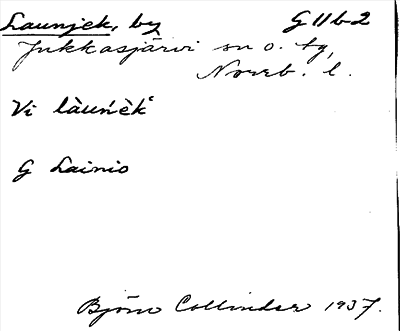 Launjek, by G 11 b 2
Jukkasjärvi sn o. tg,
Norrb. l.
Vi làuńèk'
G Lainio
Björn Collinder 1937.